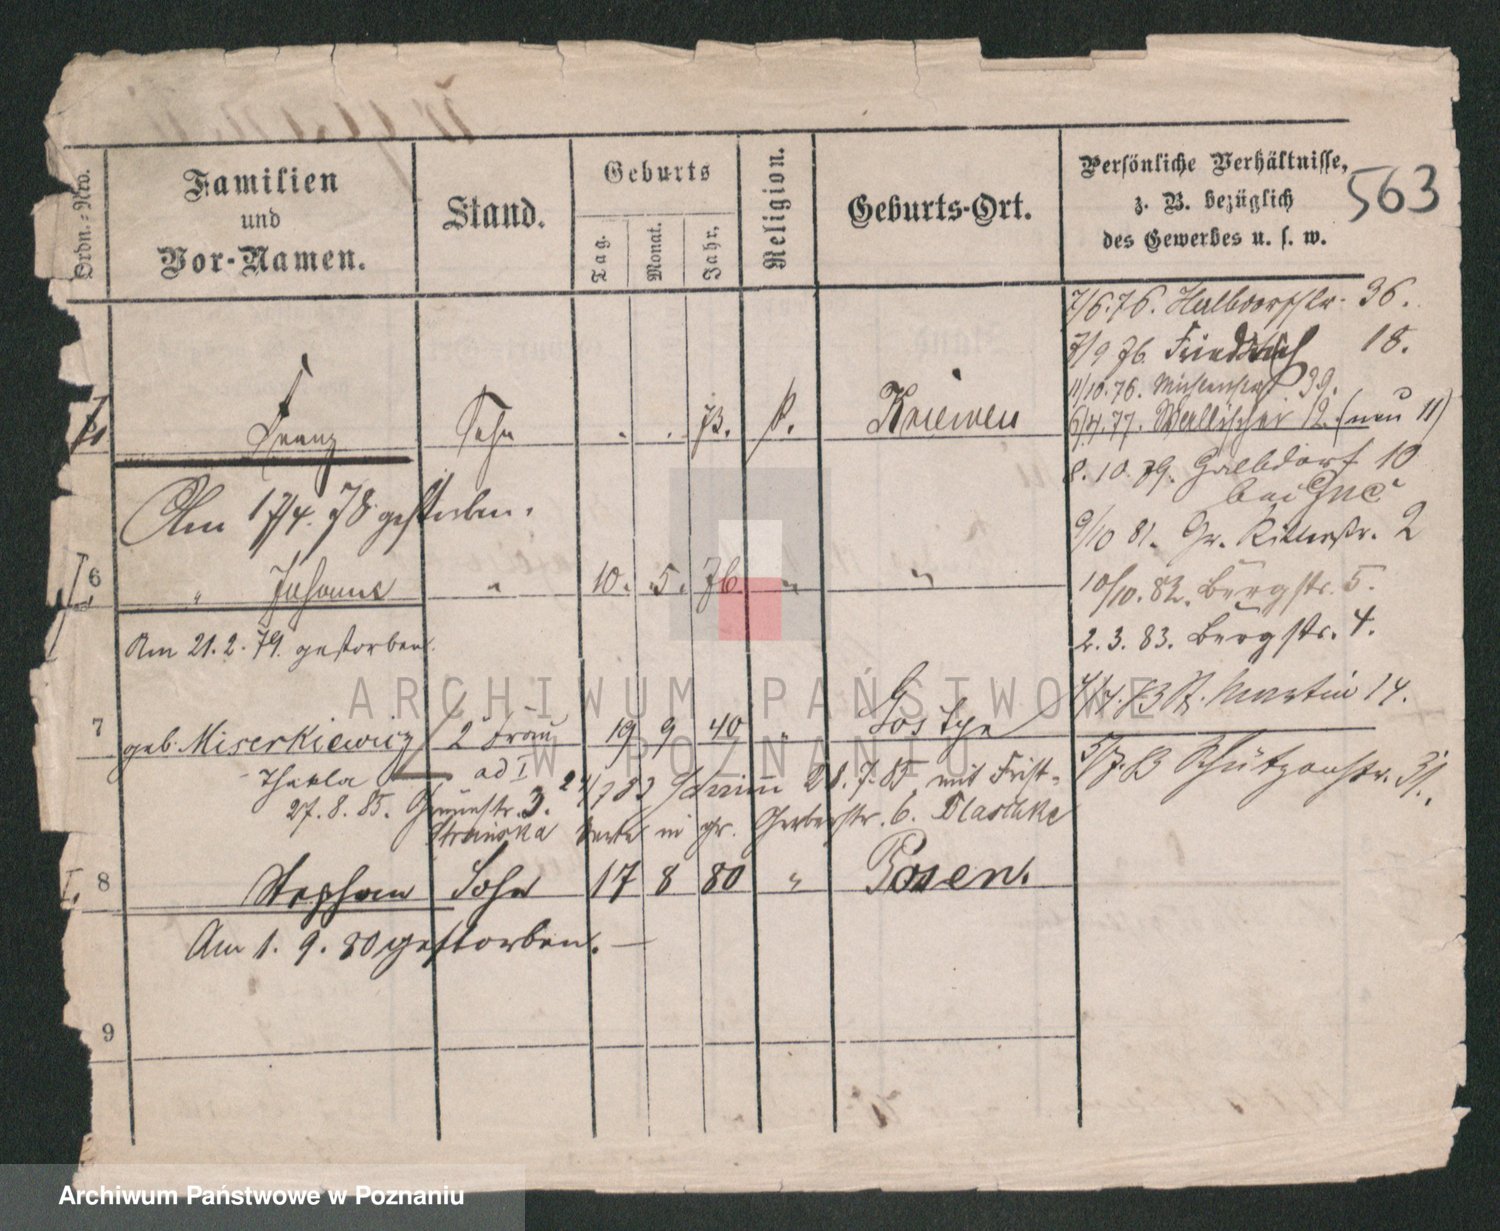 Ordn.-Nro.
Familien
und
Vor-Namen.
Stand.
Geburts
Tag.
Monat.
Jahr.
Religion.
Geburts-Ort.
Persönliche Verhältnisse,
z. B. bezüglich
des Gewerbes u. s. w.
563
7/6.76. Halbdorfstr. 36.
7/9 76. Friedrich 18.
11/10.76. 39.
77. Wallischei 12. (neu 11)
Franz Sohn . . 73. k. Kriewen
8.10.79. Halbdorf 10
bei
Am 17/4. 78 gestorben.
9/10 81. Gr. Ritterstr. 2
6 " Johann " 10. 5. 76. " "
10/10.82. Bergstr. 5.
Am 21.2.79. gestorben.
2.3.83. Bergstr. 4.
St. Martin 14.
7 geb. Miserkiewicz 2 Frau 19 9 40 " Gostyn
Thekla ad I
83 Schrimm 28.7.85 mit
5/7.83 Schützenstr. 31.
27.8.85. 3.
in gr. Gerberstr. 6.
I. 8 Stephan Sohn 17 8 80 " Posen.
Am 1. 9. 80 gestorben. —
9
ARCHIWUM PAŃSTWOWE
W POZNANIU
Archiwum Państwowe w Poznaniu